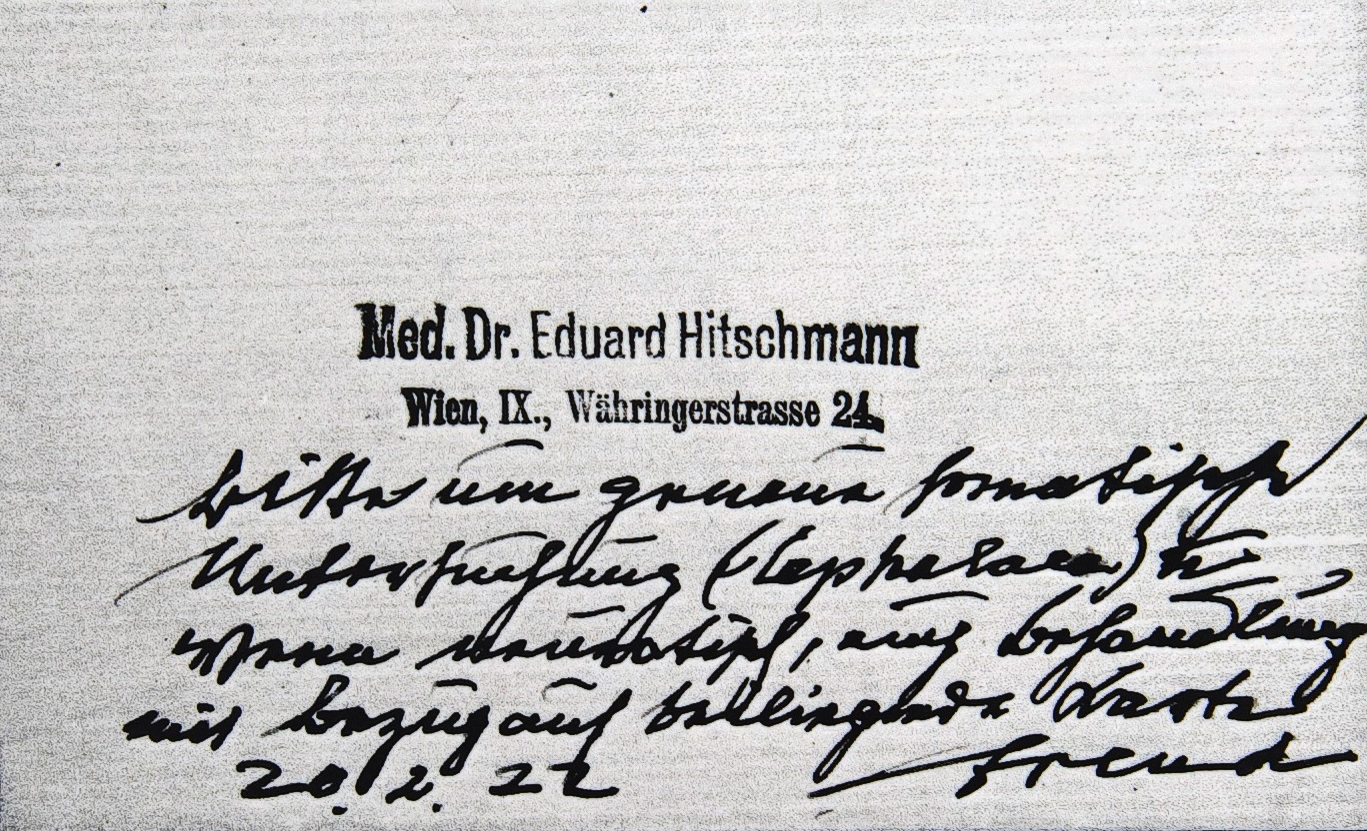 Med. Dr. Eduard Hitschmann
Wien, IX., Währingerstrasse 24.
bitte um genaue somatische
Untersuchung (Cephalaea)
wenn neurotisch, auch Behandlung
mit Bezug auf beiliegende Karte
20. 2. 22 Freud